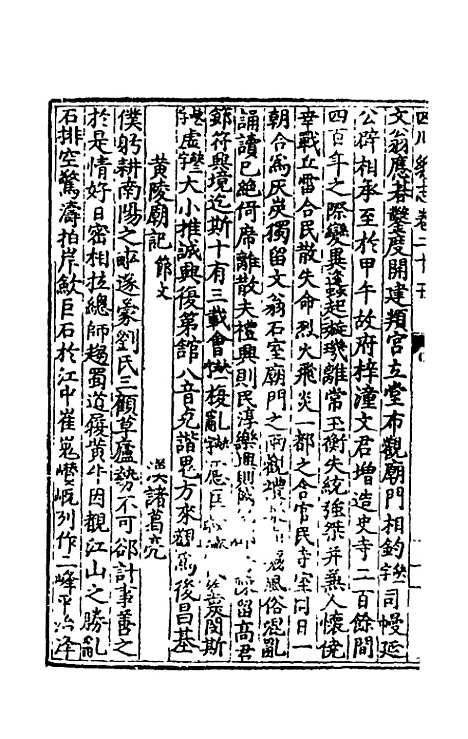 四川總志卷二十五
文翁應朞鑿度開建頖宮立堂布觀廟門相鈎缺字司幔延
公辟相承至於甲午故府梓潼文君增造史寺二百餘間
四百年之際變異蠭起璇璣離常玉衡失統強桀并兼人懷僥
幸戰丘雷合民散失命烈火飛炎一都之舍官民寺室同日一
朝合為灰炭獨留文翁石室廟門之兩觀禮 風俗混亂
誦讀已絕倚席離散夫禮興則民淳樂通則 陳留高君
節符興境迄斯十有三載會缺字復亂字應 炭閔斯
缺字虛缺字大小推誠興復第館八音克諧 方來觀為後昌基
黃陵廟記 節文 漢諸葛亮
僕躬耕南陽之畝遂蒙劉氏三顧草廬勢不可卻計事善之
於是情好日密相拉總師趨蜀道履黃牛因觀江山之勝亂
石排空驚濤拍岸斂巨石於江中崔嵬巑岏列作三峰平 洚